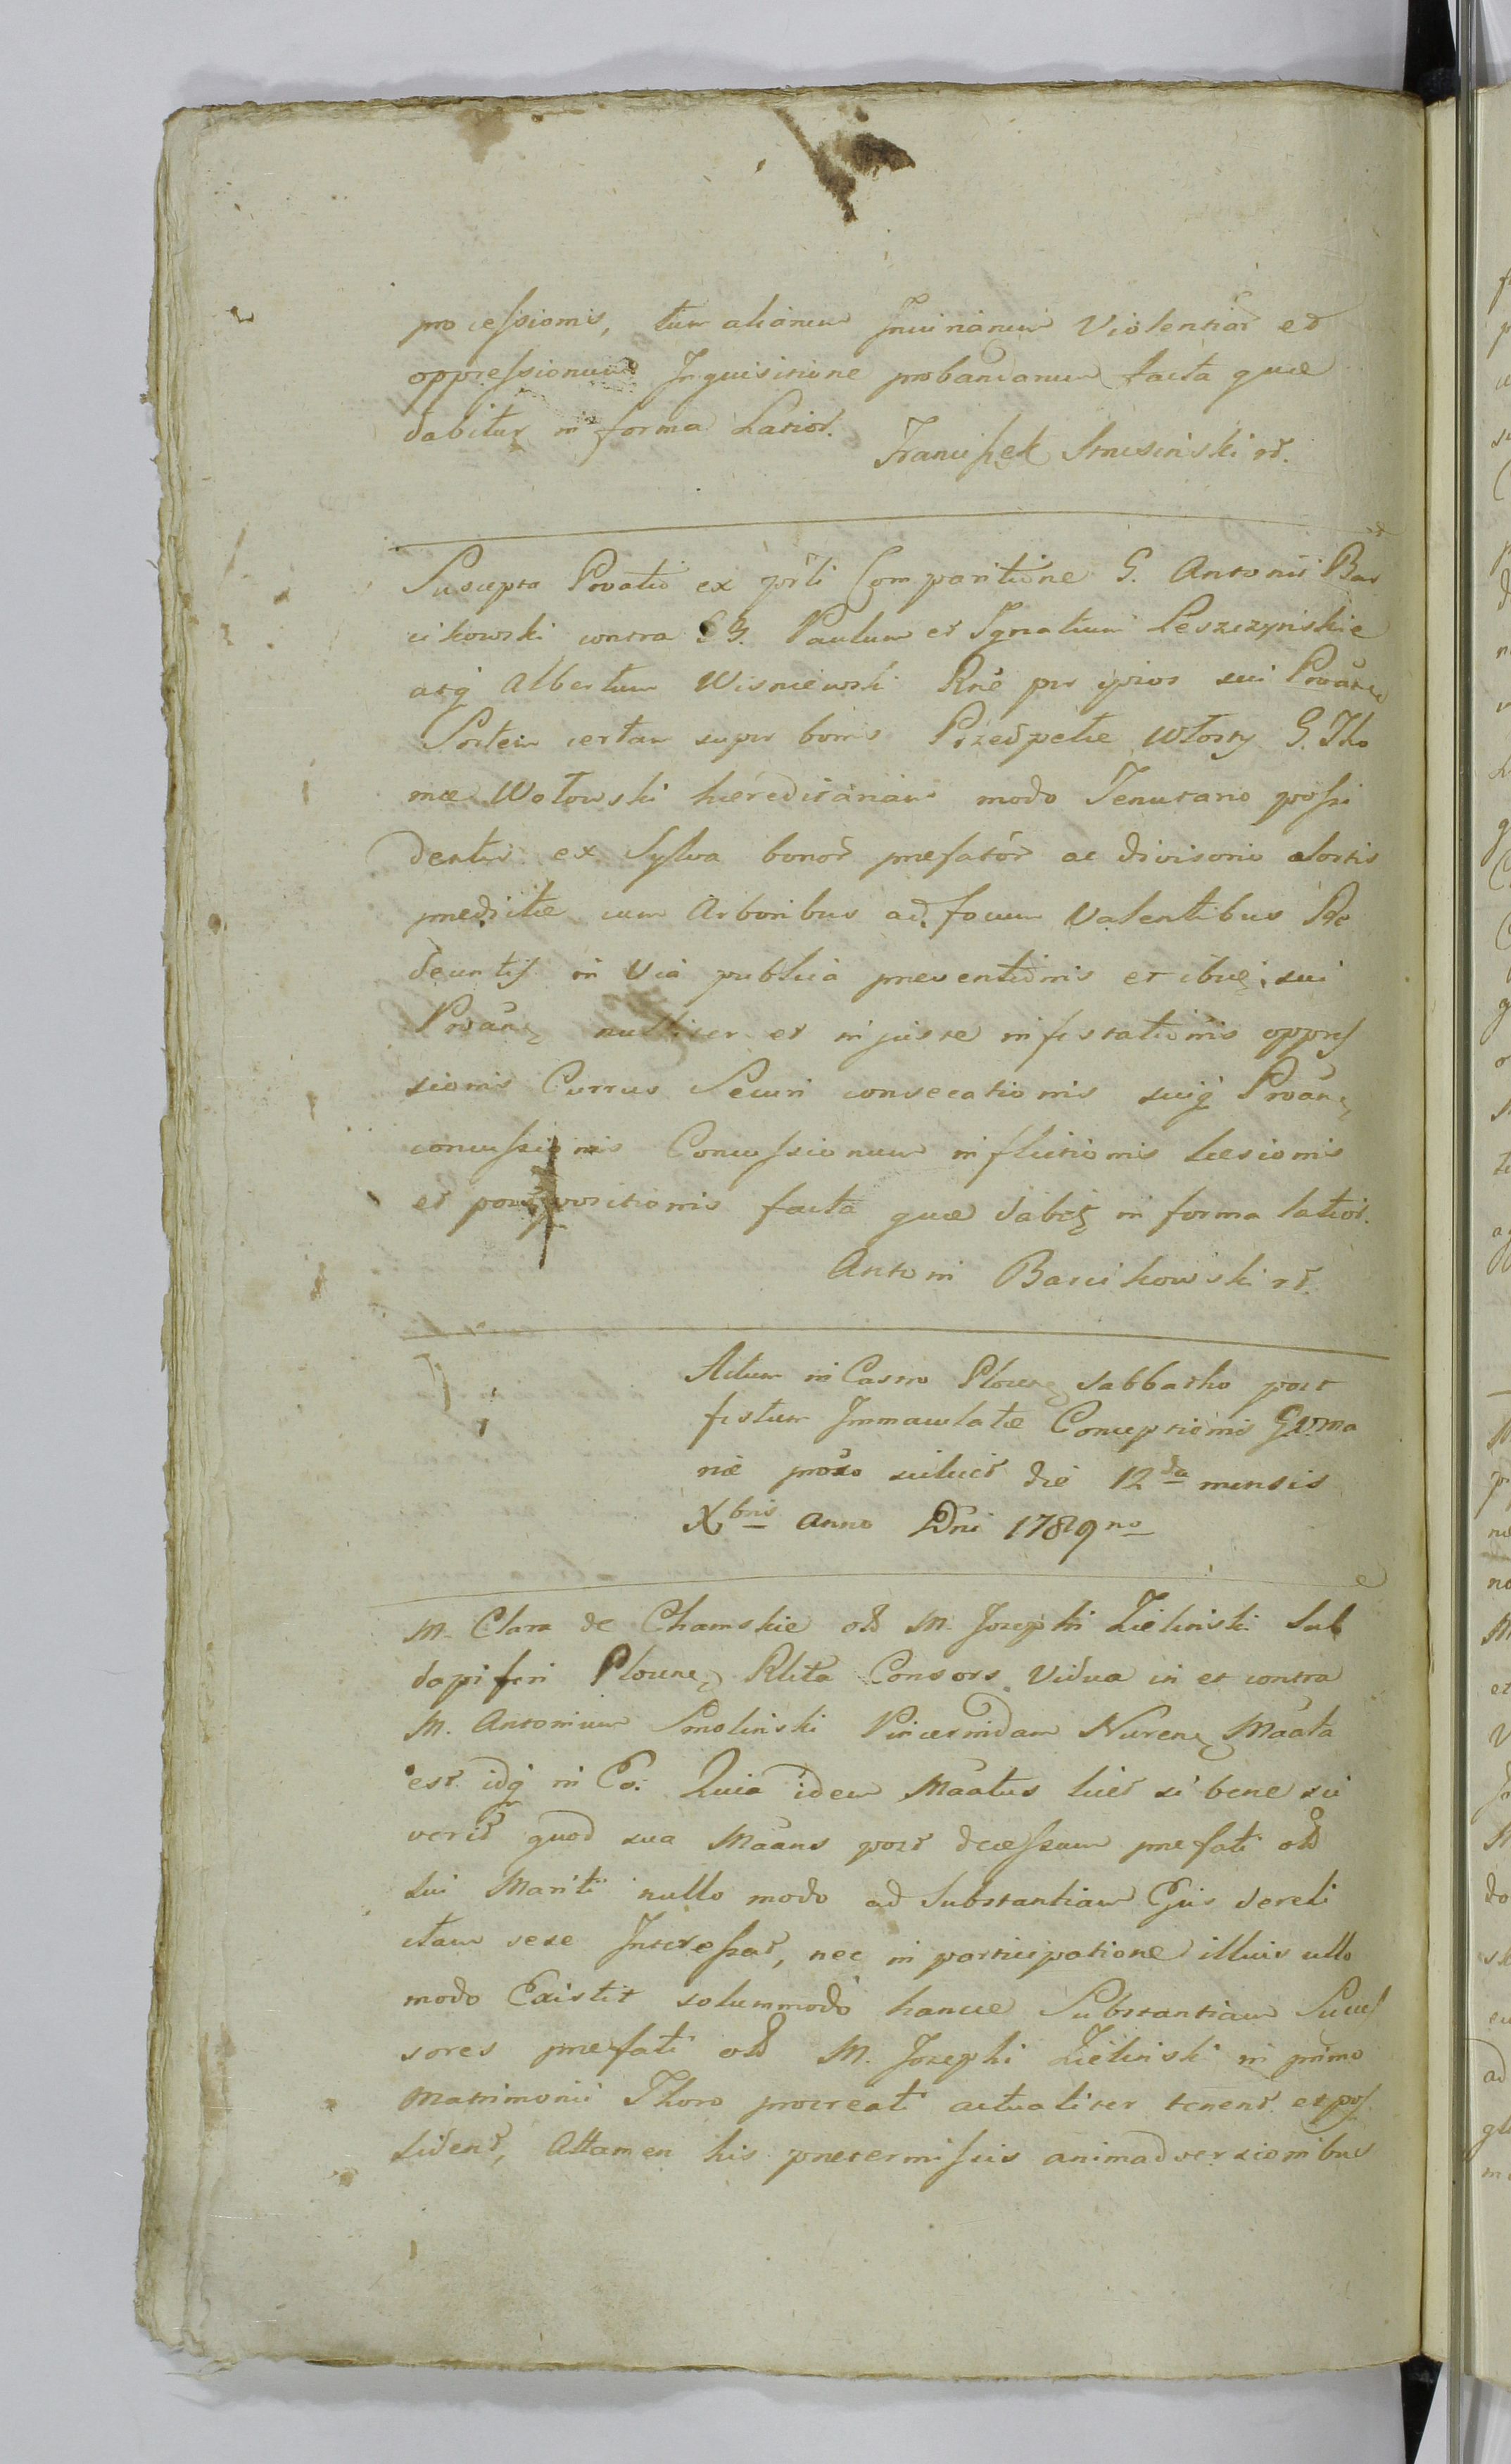 processionis, tum aliarum Iniuriarum Violentiar et
oppressionum Inquisitione probandarum facta quæ
dabitur in forma Latior.
Franciszek Strusinski mp.
Suscepta Protatio ex prti Comparitione G. Antonii Bar
cikowski contra GG. Paulum et Ignatium Leszczynskie
atq Albertum Wisniewski Rne per ipsos sui Protan
Sortem certam super bonis Przedpełcie Włosty G. Tho
mæ Wołowski hæreditariam modo Tenutario possi
dentis ex Sylva bonor præfator ac divisorio Sortis
prædictæ cum Arboribus ad focum Valentibus Re
deuntis in Via publica præventionis et ibiq sui
Protan nulliter et injuste infestationis oppres
sionis Currus Securi consecationis suiq Protan
concussionis Concussionum inflictionis læsionis
et facta quæ dabit in forma latior.
Antoni Barcikowski mp.
Actum in Castro Plocen Sabbatho post
festum Immaculatæ Conceptionis BVMa
riæ proxo scilicet die 12da mensis
Xbris Anno Dni 1789no
M. Clara de Chamskie olt M. Josephi Zielinski Sub
dapiferi Plocen Rlita Consors Vidua in et contra
M. Antonium Smolinski Pincernidam Nuren Maata
est idq in Eo: Quia idem Maatus licet si bene sci
verit quod sua Maans post decessum præfati olt
sui Mariti nullo modo ad Substantiam Ejus dereli
ctam sese Interessat, nec in participatione illius ullo
modo Existit solummodo hancce Substantiam Succes
sores præfati olt M. Josephi Zielinski in primo
Matrimonii Thoro procreati actualiter tenent et pos
sident, Attamen his prætermissis animadversionibus